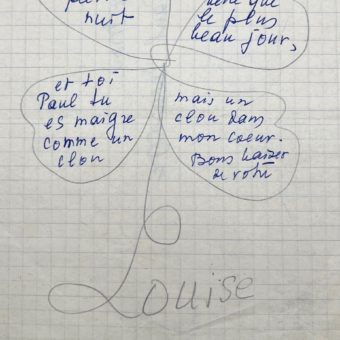 nuit
que
le plus
beau jour,
et toi
Paul tu
es maigre
comme un
clou
mais un
clou dans
mon coeur.
Bons baiser
Louise